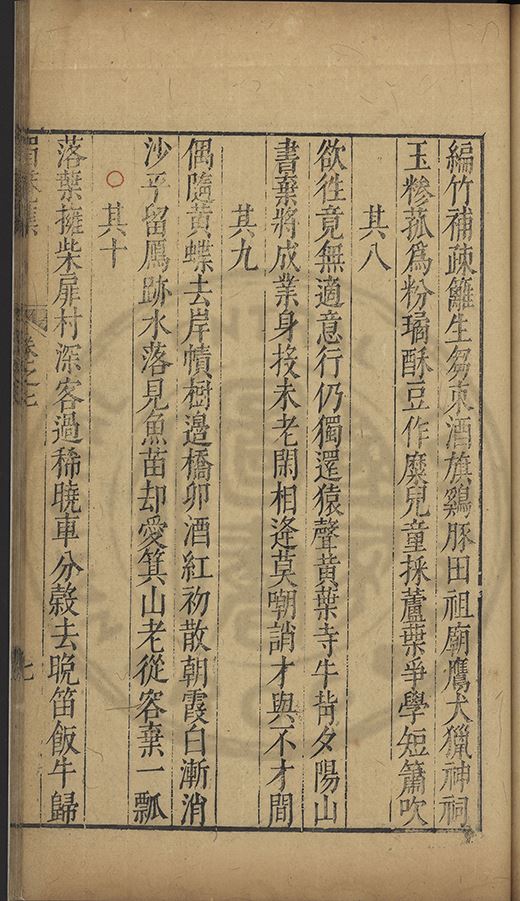 編竹補疎籬生芻束酒旗鷄豚田祖廟鷹犬獵神祠
玉糝菰爲粉璚酥豆作糜兒童採蘆葉爭學短簫吹
其八
欲徃竟無適意行仍獨還猿聲黃葉寺牛背夕陽山
書棄將成業身投未老閑相逢莫嘲誚才與不才間
其九
偶隨黃蝶去岸幘樹邉橋卯酒紅初散朝霞白漸消
沙平留鳫跡水落見魚苗却愛箕山老從容棄一瓢
其十
落葉擁柴扉村深客過稀曉車分榖去晩笛飯牛歸
卷之七
七